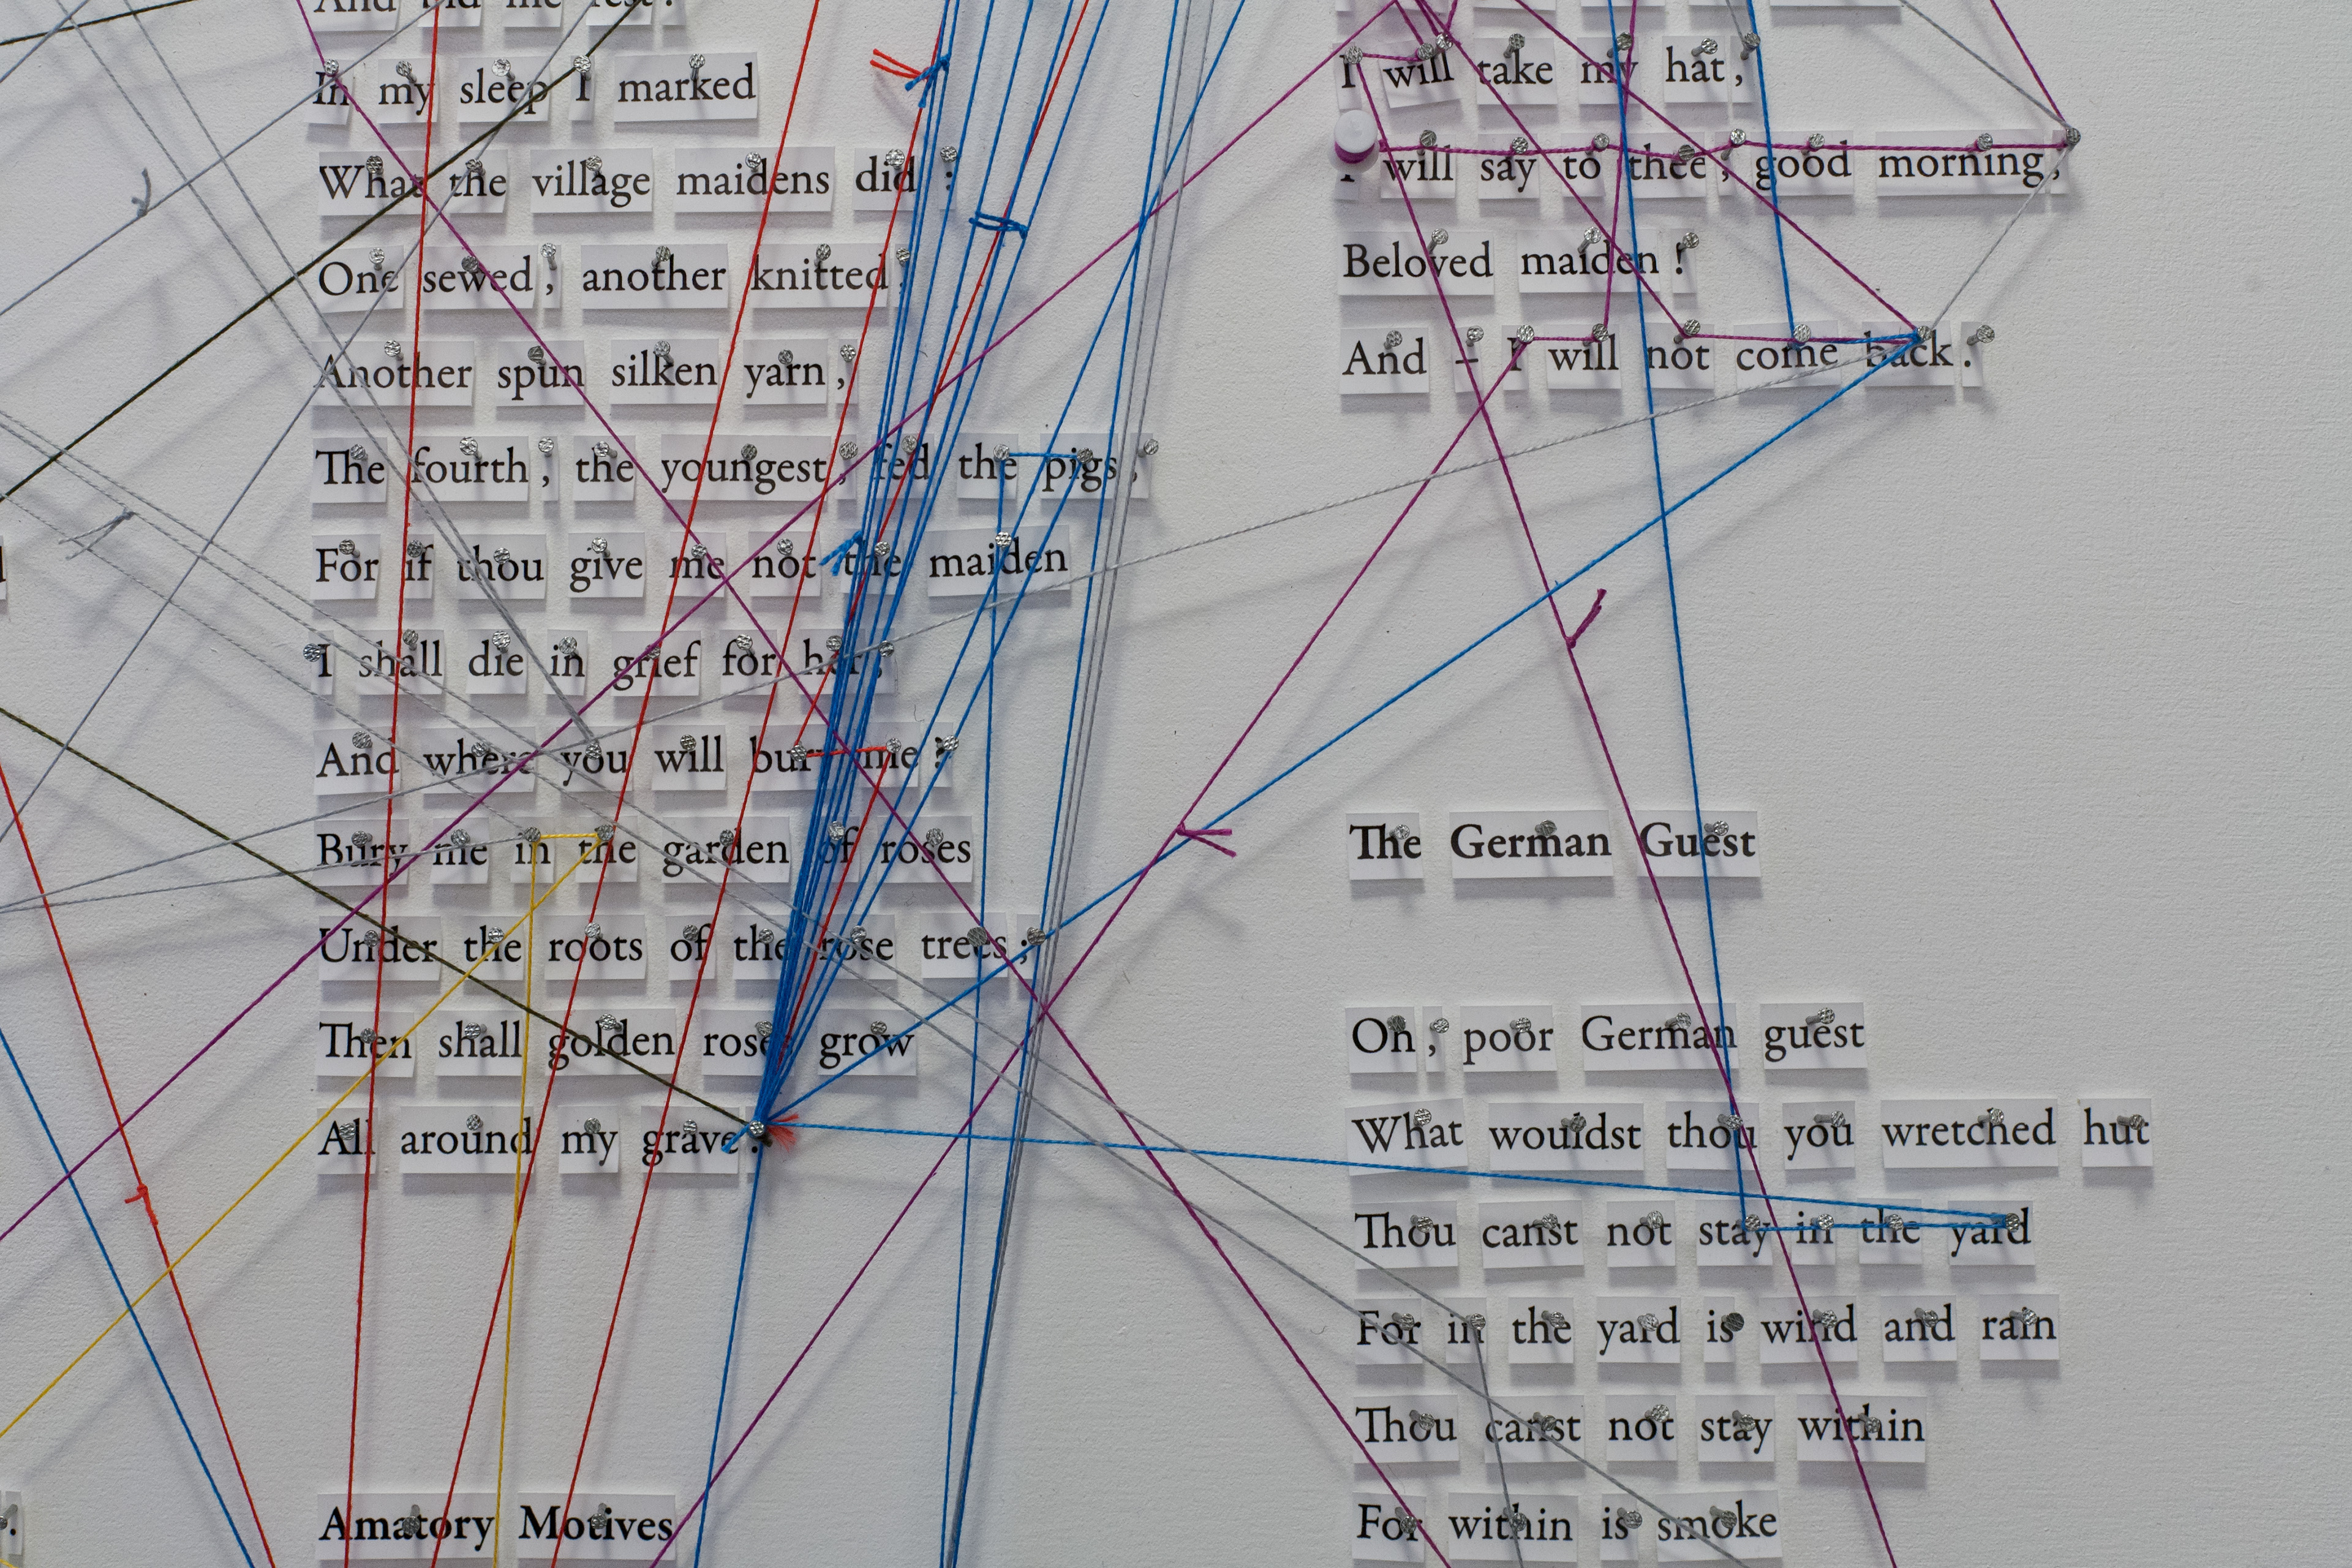 And bid me rest.
In my sleep I marked
What the village maidens did :
One sewed , another knitted ,
Another spun silken yarn ,
The fourth , the youngest , fed the pigs ,
For if thou give me not the maiden
I shall die in grief for her ;
And where you will bury me ?
Bury me in the garden of roses
Under the roots of the rose trees ;
Then shall golden roses grow
All around my grave .
Amatory Motives
I will take my hat ,
I will say to thee , good morning ,
Beloved maiden !
And – I will not come back .
The German Guest
Oh , poor German guest
What wouldst thou you wretched hut
Thou canst not stay in the yard
For in the yard is wind and rain
Thou canst not stay within
For within is smoke